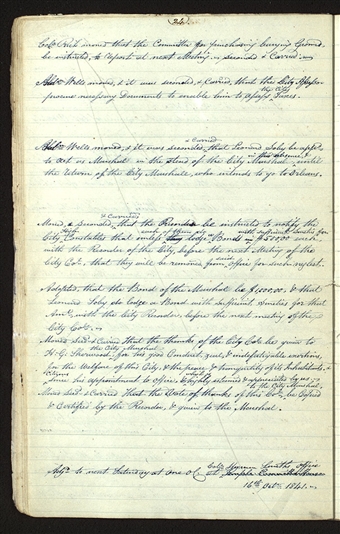 24
Colo. Rich moved that the Committee for purchasing burying Ground,
be instructed, to report at next Meeting, seconded & Carried.
Aldn. Wells moved, & it was seconded, & Carried, that the City Assessor
the City
procure necessary Documents to enable him to assess Taxes.
& Carried
Aldn. Wells moved, & it was seconded, that Leonard Soby be appd.
in his absence, &
to act as Marshal in the stead of the City Marshal, until
the return of the City Marshal, who intends to go to Orleans.
& Carried
Moved, & seconded, that the Recorder be instructed to notify the
High each of them with sufficient Sureties for
City Constables that unless they lodge Bonds in $500.00 each
with the Recorder of the City, before the next Meeting of the
said
City Col. that they will be removed from office for such neglect.
Adopted, that the Bond of the Marshal be $1,000.00, & that
Leonard Soby do lodge a Bond with sufficient Sureties for that
Amt. with the City Recorder, before the next meeting of the
City Col.
Moved Secd. & Carried that the thanks of the City Col. be given to
the City Marshal
H. G. Sherwood, for his good Conduct, zeal, & indefatigable exertions,
for the Welfare of this City, & the peace & tranquility of its Inhabitants,
Citizens which
since his appointment to Office, is highly esteemed & appreciated by us,
to the City Marshal,
Moved Secd. & Carried that the Vote of thanks of this Col. be Copied
& Certified by the Recorder, & given to the Marshal.
Colo. Hyrum Smith's Office
Adjd. to next Saturday at one O'C. at Temple Committee House
16th. Octr. 1841.